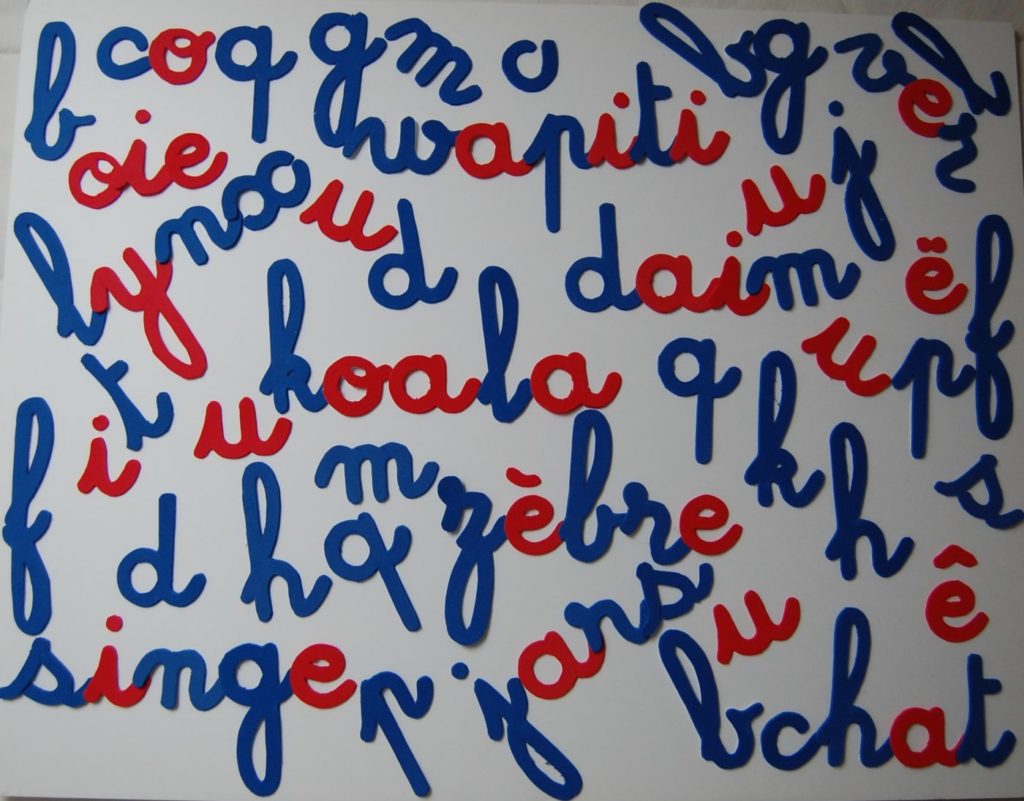 b coq g m c b g ver l
oie wapiti j
lynx u d daim u ë
i t u koala q u p f
f d h q m zèbre k h s
singe p jars u ê
b chat